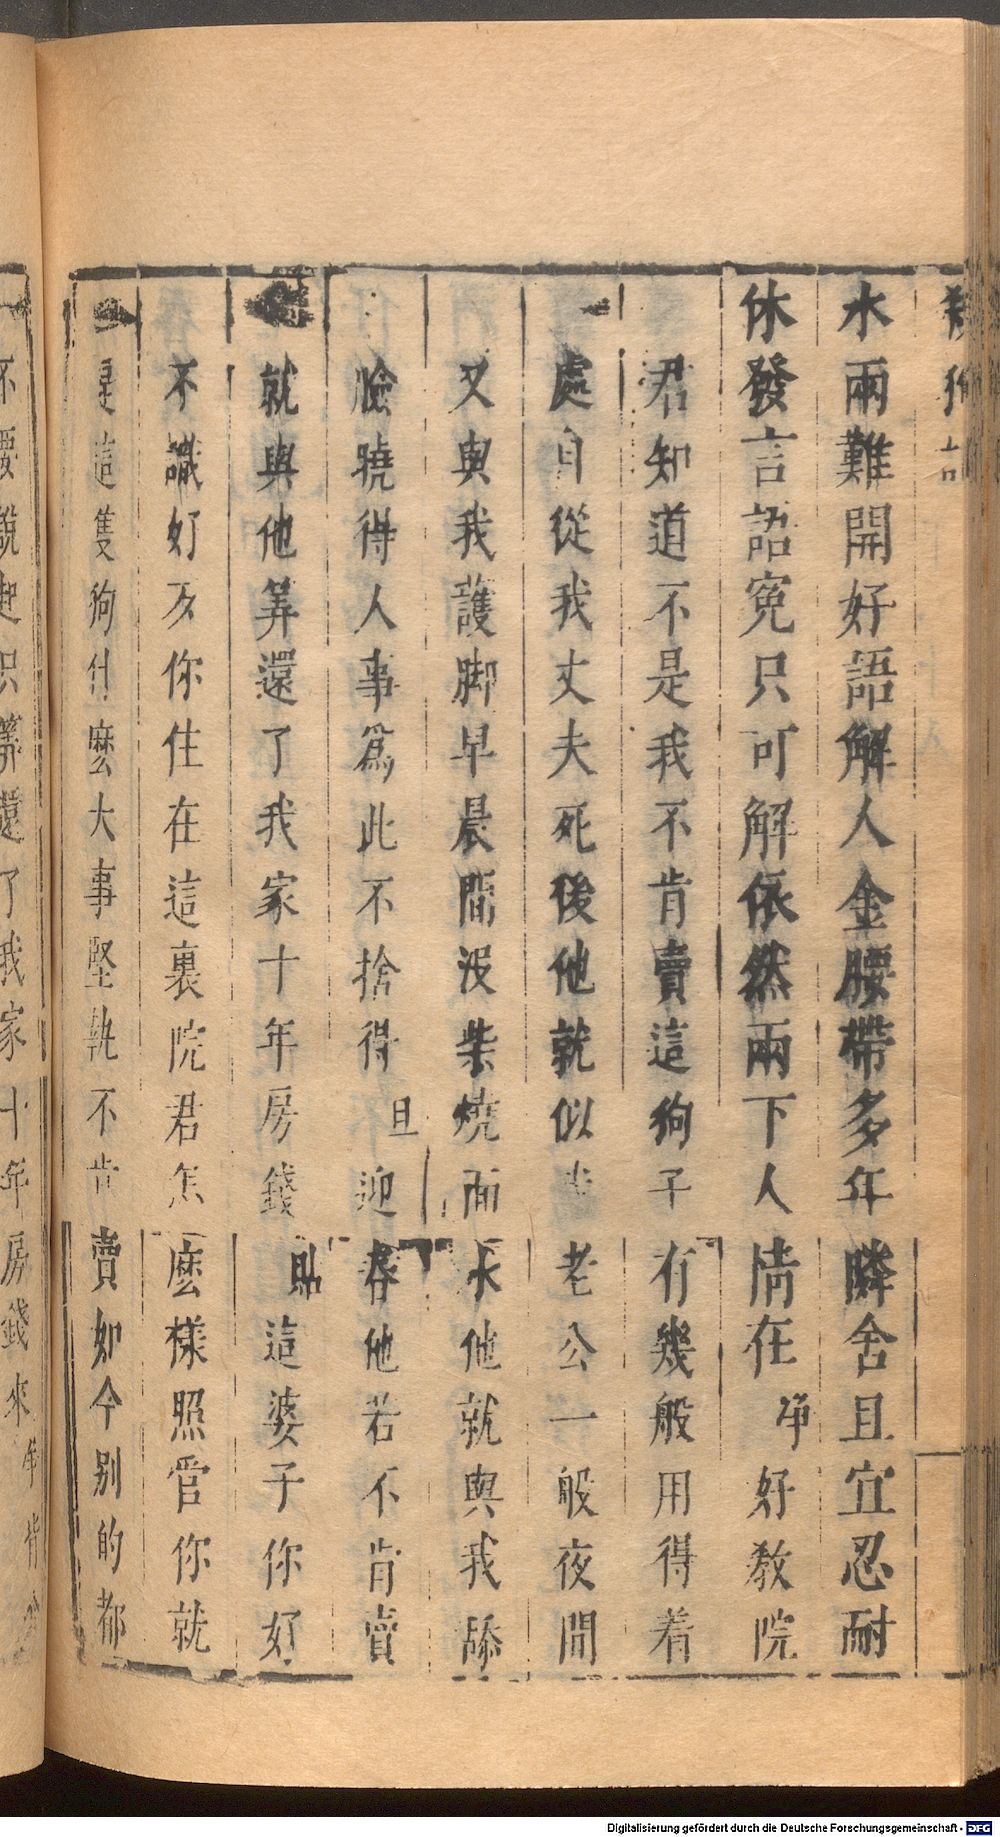 水兩難開好語解人金腰帶多年隣舍且宜忍耐
休發言語寃只可解依然兩下人情在 净 好教院
君知道不是我不肯賣這狗子有幾般用得着
處自從我丈夫死後他就似老公一般夜間
又與我護脚早晨間没柴燒面水他就與我舔
臉曉得人事爲此不捨得 旦 迎春他若不肯賣
就與他筭還了我家十年房錢 貼 這婆子你好
不識好歹你住在這裏院君怎麽樣照管你就
是這隻狗什麽大事堅執不肯賣如今别的都
不要說起只筭還了我家十年房錢來
Digitalisierung gefördert durch die Deutsche Forschungsgemeinschaft - DFG